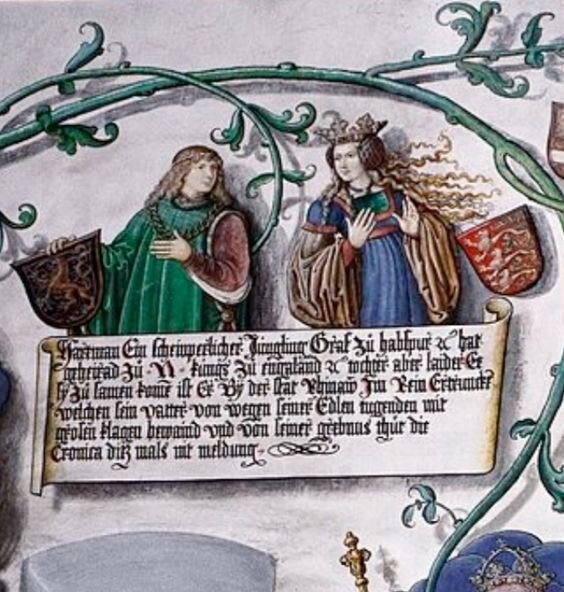 Hartman Ein scheinperlicher Jüngling Graf zü habspur ⁊c hat
geheirad zü N. künigs zü engeland ⁊c tochter aber laider Ee
sy zü samen kome ist Er By der stat Rhinaw Jm Rein Ertruncke
welchen sein vatter von wegen seiner Edlen tugenden mit
grosen klagen bewaind vnd von seiner grebnus thüt die
Cronica diß mals nit meldung